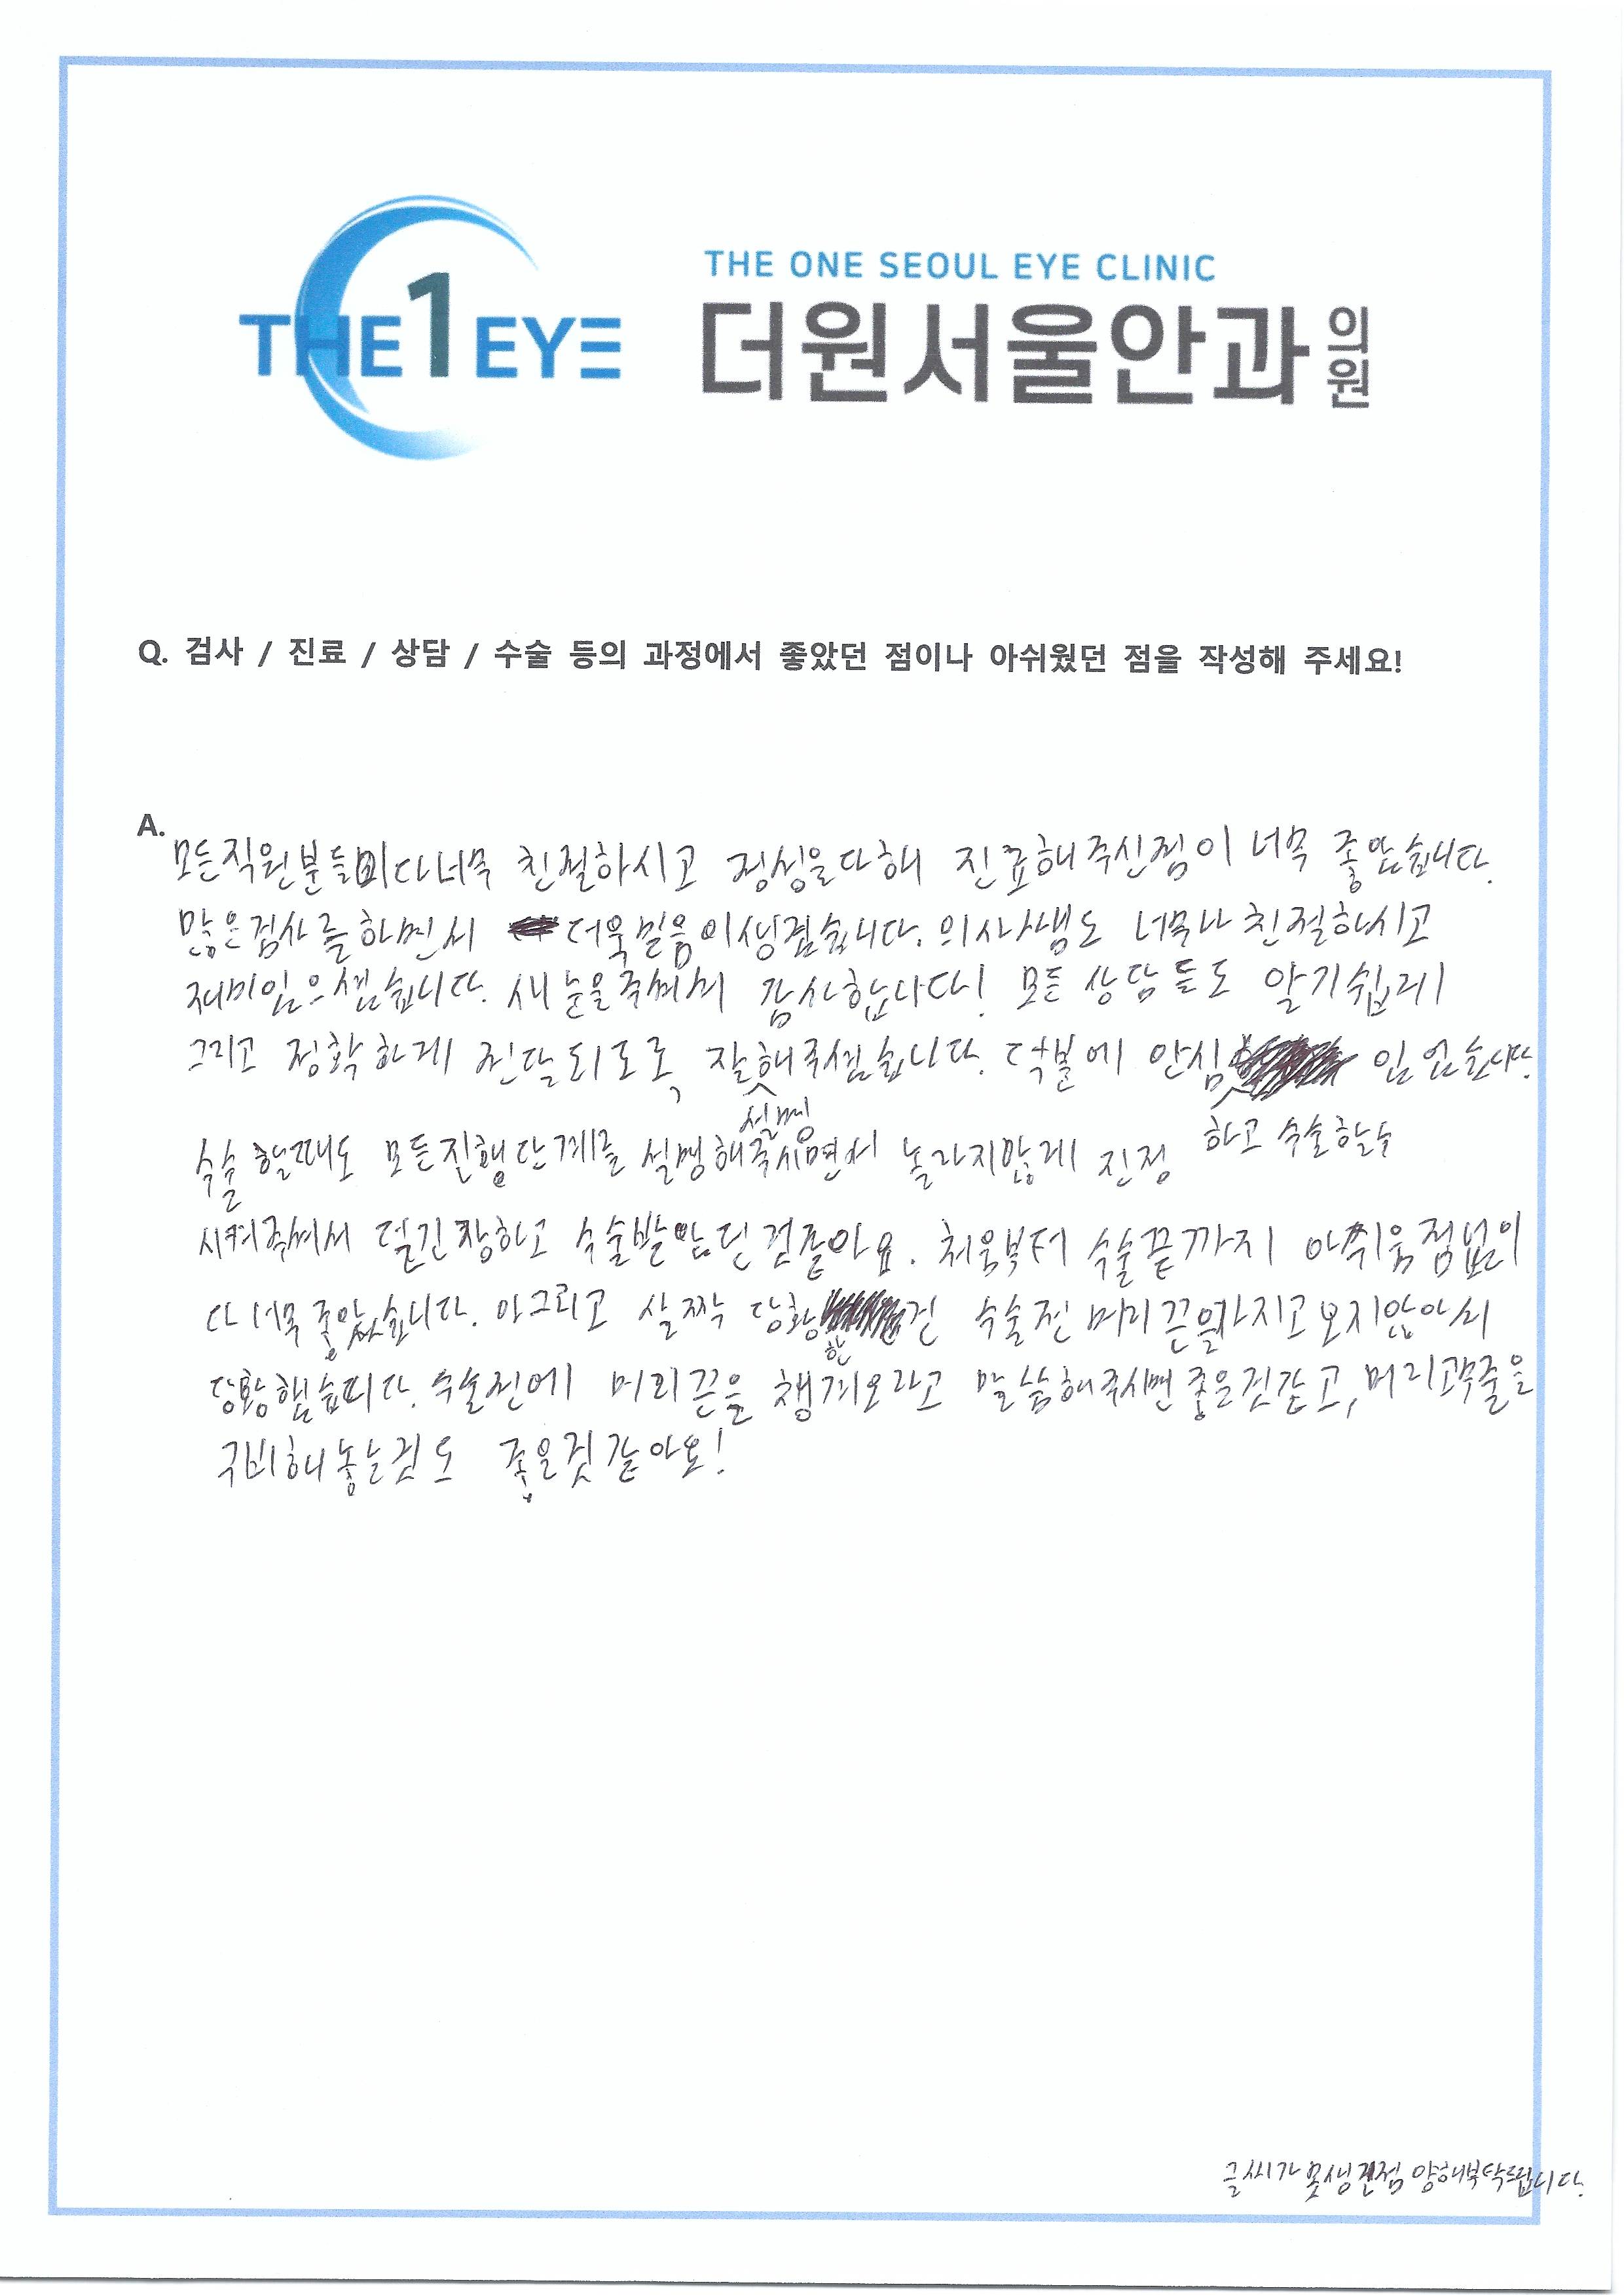 THE1EYE
THE ONE SEOUL EYE CLINIC
더원서울안과의원
Q. 검사 / 진료 / 상담 / 수술 등의 과정에서 좋았던 점이나 아쉬웠던 점을 작성해 주세요!
A.
모든직원분들이다너무 친절하시고 정성을다해 진료해주신점이 너무 좋았습니다.
많은검사를하면서 더욱믿음이생겼습니다. 의사쌤도 너무나친절하시고
재미있으셨습니다. 새눈을주셔서 감사합니다! 모든 상담들도 알기쉽게
그리고 정확하게 전달되도록, 잘설명해주셨습니다. 덕분에 안심하고 수술할수 있었습니다.
수술 할때도 모든진행단계를 설명해주시면서 놀라지않게 진정
시켜주셔서 덜긴장하고 수술받았던것같아요. 처음부터 수술끝까지 아쉬움점없이
다너무좋았습니다. 아그리고 살짝 당황한건 수술전 머리끈을가지고오지않아서
당황했습니다. 수술전에 머리끈을 챙겨오라고 말씀해주시면좋을것같고, 머리고무줄을
구비해놓는것도 좋을것같아요!
글씨가못생긴점 양해부탁드립니다.